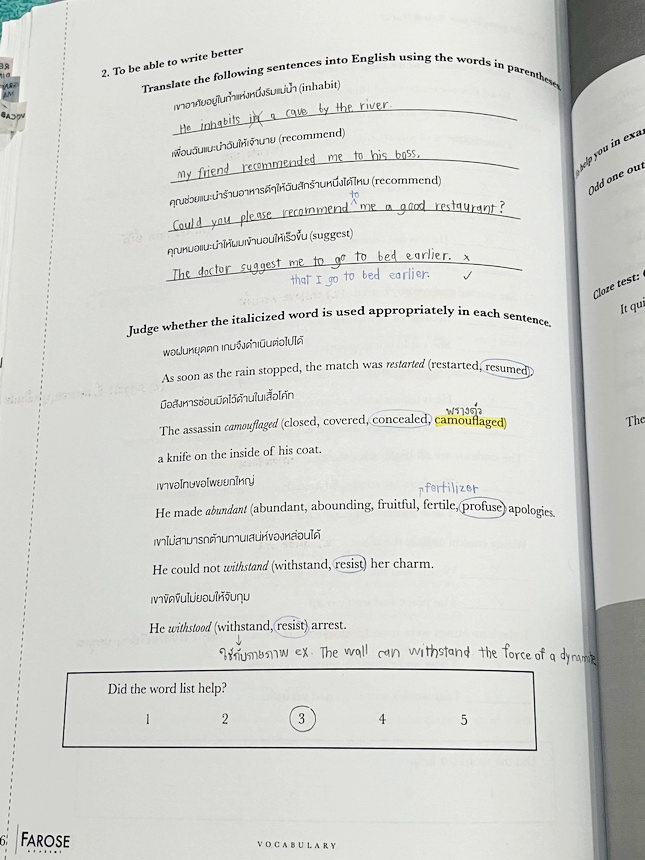 2. To be able to write better
Translate the following sentences into English using the words in parentheses
เขาอาศัยอยู่ในถ้ำแห่งหนึ่งริมแม่น้ำ (inhabit)
He inhabits in a cave by the river.
เพื่อนฉันแนะนำฉันให้เจ้านาย (recommend)
My friend recommended me to his boss.
คุณช่วยแนะนำร้านอาหารดีๆให้ฉันสักร้านหนึ่งได้ไหม (recommend)
to
Could you please recommend me a good restaurant?
คุณหมอแนะนำให้ผมเข้านอนให้เร็วขึ้น (suggest)
The doctor suggest me to go to bed earlier. x
that I go to bed earlier. ✓
Judge whether the italicized word is used appropriately in each sentence.
พอฝนหยุดตก เกมจึงดำเนินต่อไปได้
As soon as the rain stopped, the match was restarted (restarted, resumed)
มือสังหารซ่อนมีดไว้ด้านในเสื้อโค้ท
พรางตัว
The assassin camouflaged (closed, covered, concealed, camouflaged)
a knife on the inside of his coat.
เขาขอโทษขอโพยยกใหญ่
fertilizer
He made abundant (abundant, abounding, fruitful, fertile, profuse) apologies.
เขาไม่สามารถต้านทานเสน่ห์ของหล่อนได้
He could not withstand (withstand, resist) her charm.
เขาขัดขืนไม่ยอมให้จับกุม
He withstood (withstand, resist) arrest.
ใช้กับกายภาพ ex. The wall can withstand the force of a dynamite
Did the word list help?
1 2 3 4 5
FAROSE
VOCABULARY
help you in exa
Odd one out
Cloze test:
It qui
The